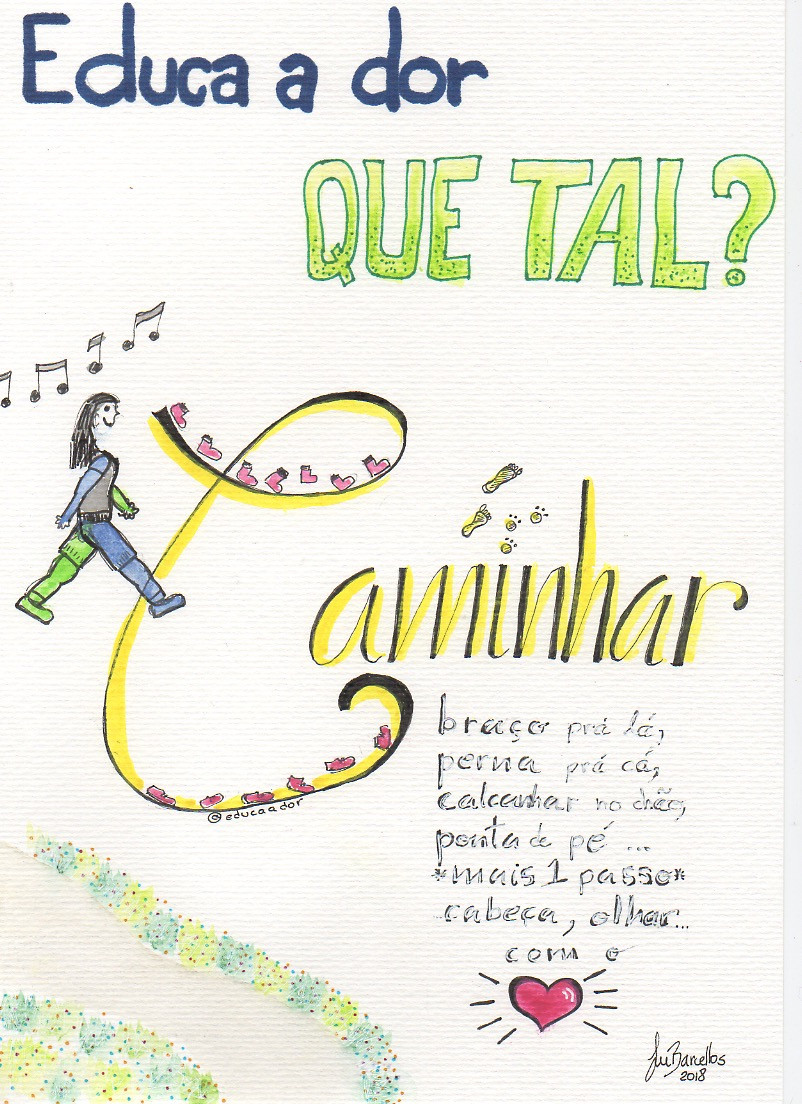 Educa a dor
QUE TAL?
Caminhar
©educaador
braço prá lá,
perna prá cá,
calcanhar no chão,
ponta de pé ...
*mais 1 passo*
cabeça, olhar...
com o
Barcellos
2018